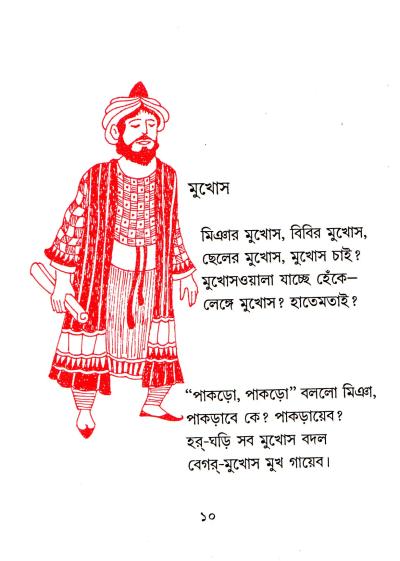 মুখোস
মিঞার মুখোস, বিবির মুখোস,
ছেলের মুখোস, মুখোস চাই?
মুখোসওয়ালা যাচ্ছে হেঁকে—
লেঙ্গে মুখোস? হাতেমতাই?
“পাকড়ো, পাকড়ো” বললো মিঞা,
পাকড়াবে কে? পাকড়ায়েব?
হর্-ঘড়ি সব মুখোস বদল
বেগর্-মুখোস মুখ গায়েব।
১০